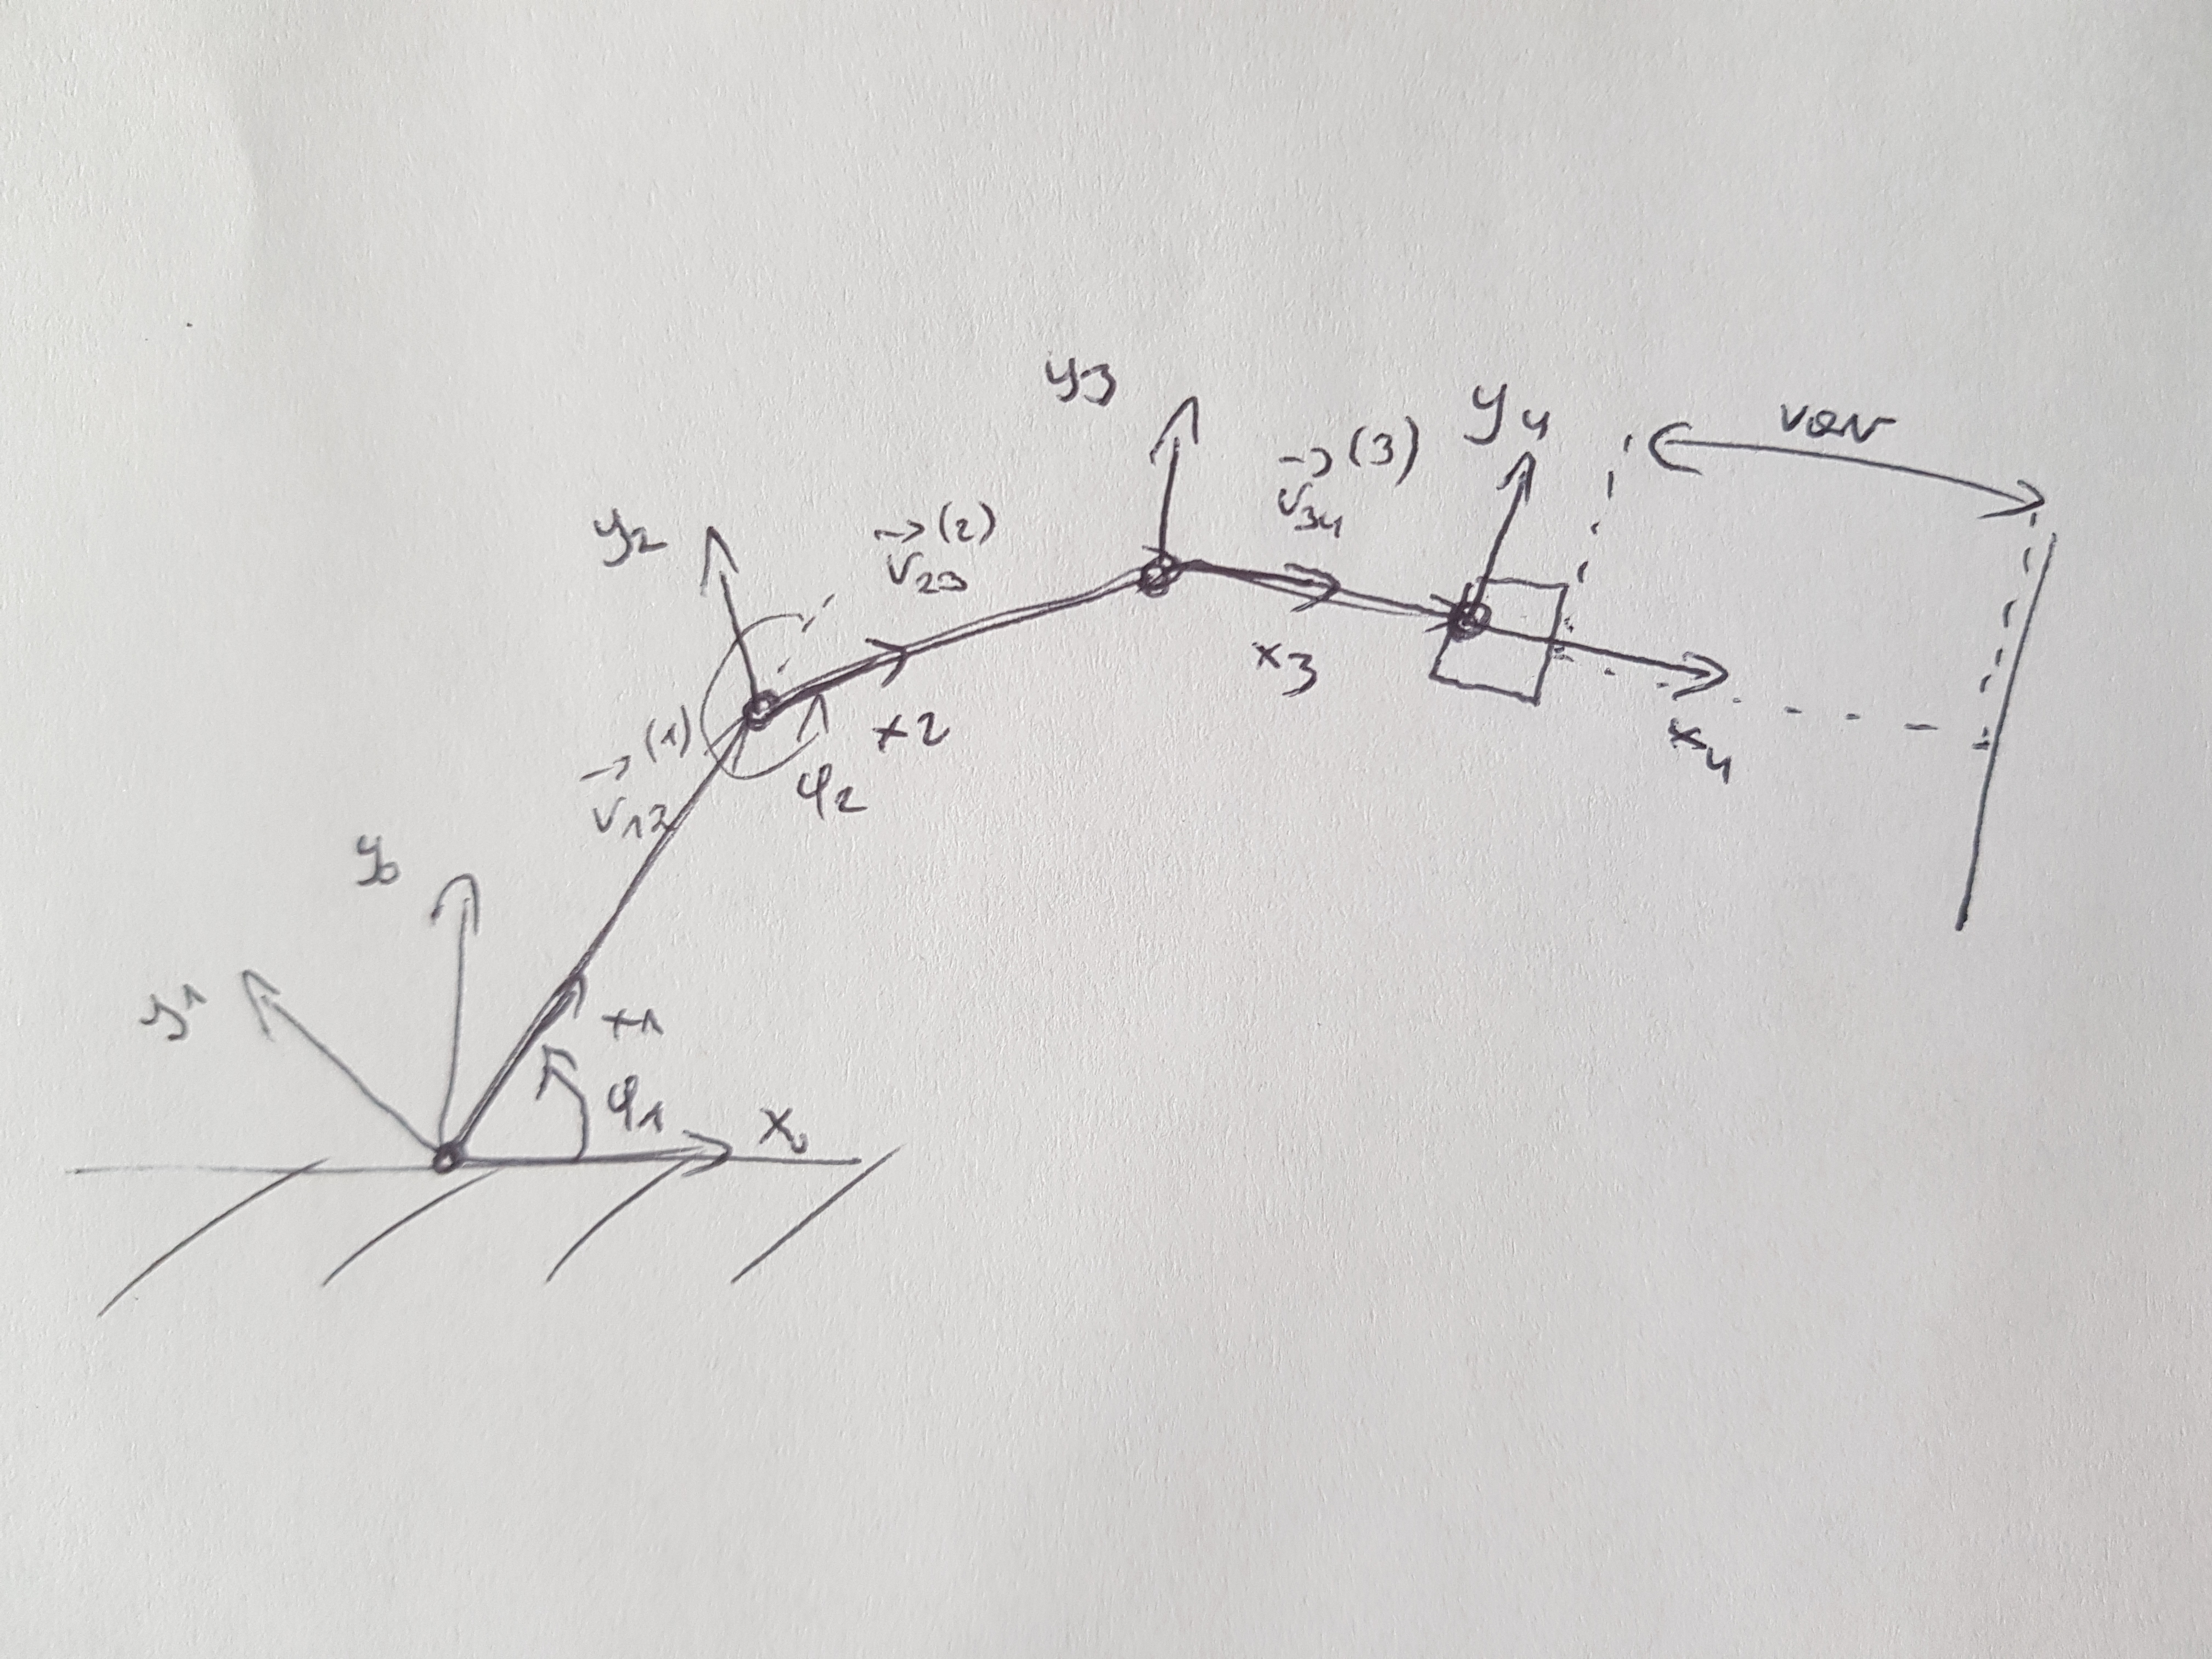 y₁
y₀
x₁
φ₁
x
v⃗₁₂⁽¹⁾
y₂
φ₂
x₂
v⃗₂₃⁽²⁾
y₃
x₃
v⃗₃₄⁽³⁾
y₄
x₄